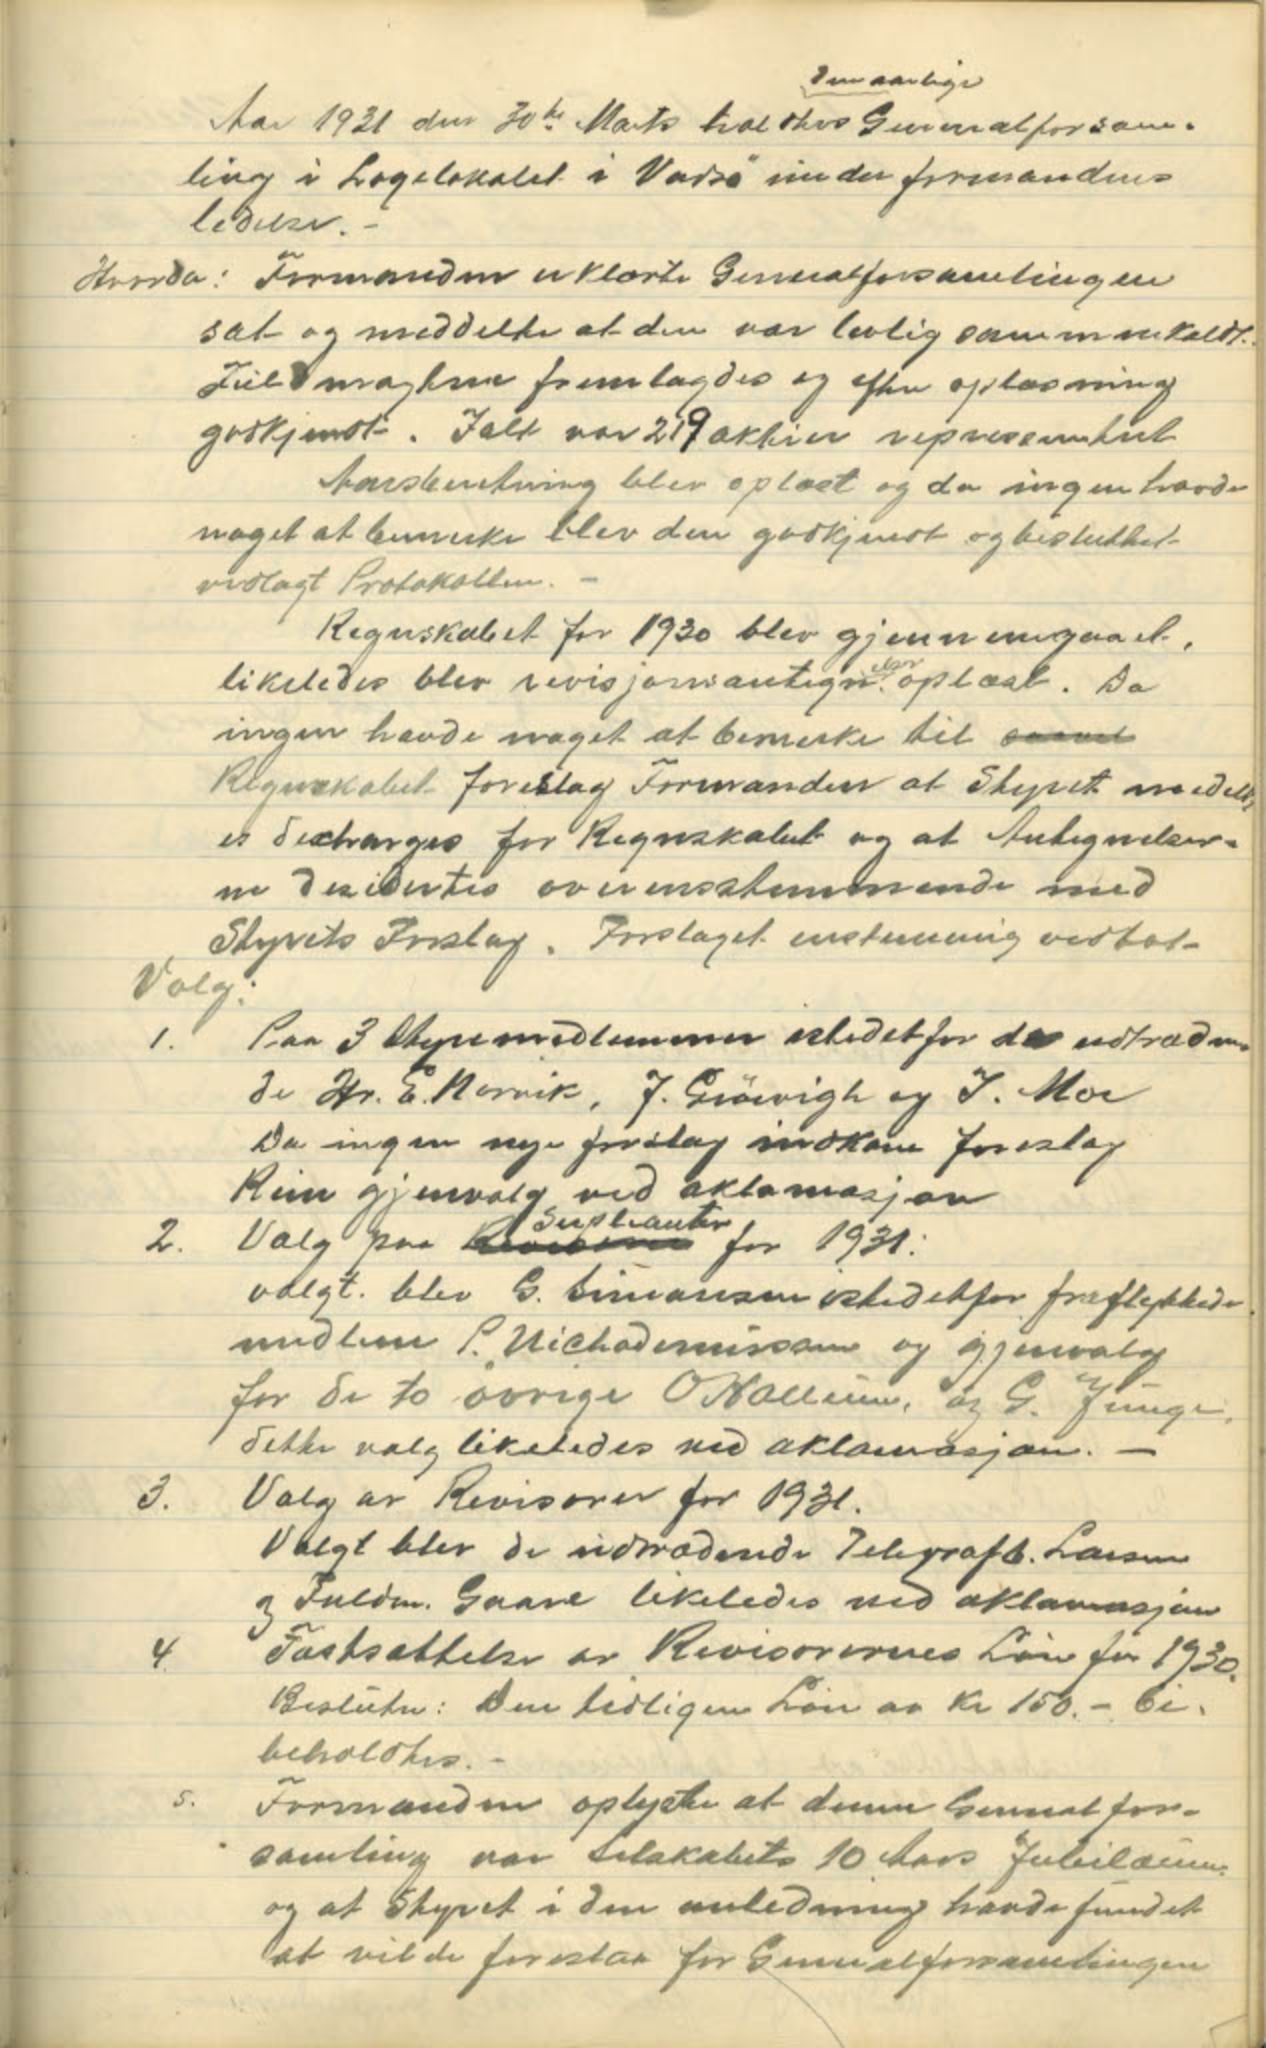 den aarlige
Aar 1931 den 30te Marts holdtes Generalforsam-
ling i Logelokalet i Vadsö under formandens
ledelse. -
Hvorda: Formanden erklærte Generalforsamlingen
sat og meddelte at den var lovlig sammenkaldt.
Fuldmagtene fremlagdes og efter oplæsning
godkjendt. Ialt var 219 aktier representert
Aarsberetning blev oplæst og da ingen havde
noget at bemerke blev den godkjendt og besluttet
vedlagt Protokollen. -
Regnskabet for 1930 blev gjennemgaaet,
likeledes blev revisjonsantegnelser oplæst. Da
ingen havde noget at bemerke til saavel
Regnskabet foreslog Formanden at Styret meddelt
es decharges for Regnskabet og at Antegnelser-
ne desidertes overensstemmende med
Styrets Forslag. Forslaget enstemmig vedtat
Valg:
1. Paa 3 Styremedlemmer istedetfor de udtræden-
de Hr. E. Norvik, J. Grövigh og I. Moe
Da ingen nye forslag indkom foreslog
Reim gjenvalg ved aklamasjon
2. Valg paa Revisorer Supleanter for 1931:
valgt blev G. Simonsen istedetfor fraflyttede
medlem P. Nichodemussen og gjenvalg
for de to övrige O Hallium, og G. Junge,
dette valg likeledes ved aklamasjon. -
3. Valg av Revisorer for 1931.
Valgt blev de udtrædende Telegrafb. Larsen
og Fuldm. Gaare likeledes ved aklamasjon
4 Fastsættelse av Revisorernes Lön for 1930.
Beslutn: Den tidligere Lön av Kr 150. - bi-
beholdtes. -
5. Formanden oplyste at denne Generalfor-
samling var Selskabets 10 Aars Jubilæum
og at Styret i den anledning havde fundet
at vilde foreslaa for Generalforsamlingen